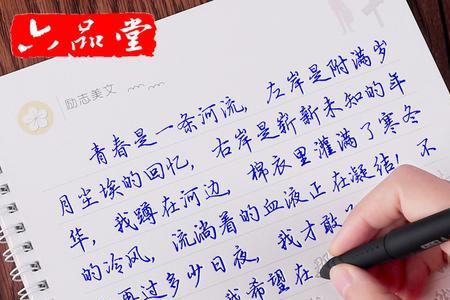 六品堂
励志美文
青春是一条河流，左岸是附满岁
月尘埃的回忆，右岸是崭新未知的年
华，我蹲在河边，棉衣里灌满了寒冬
的冷风，流淌着的血液正在凝结！不
再过多少日夜，我才敢
我希望在